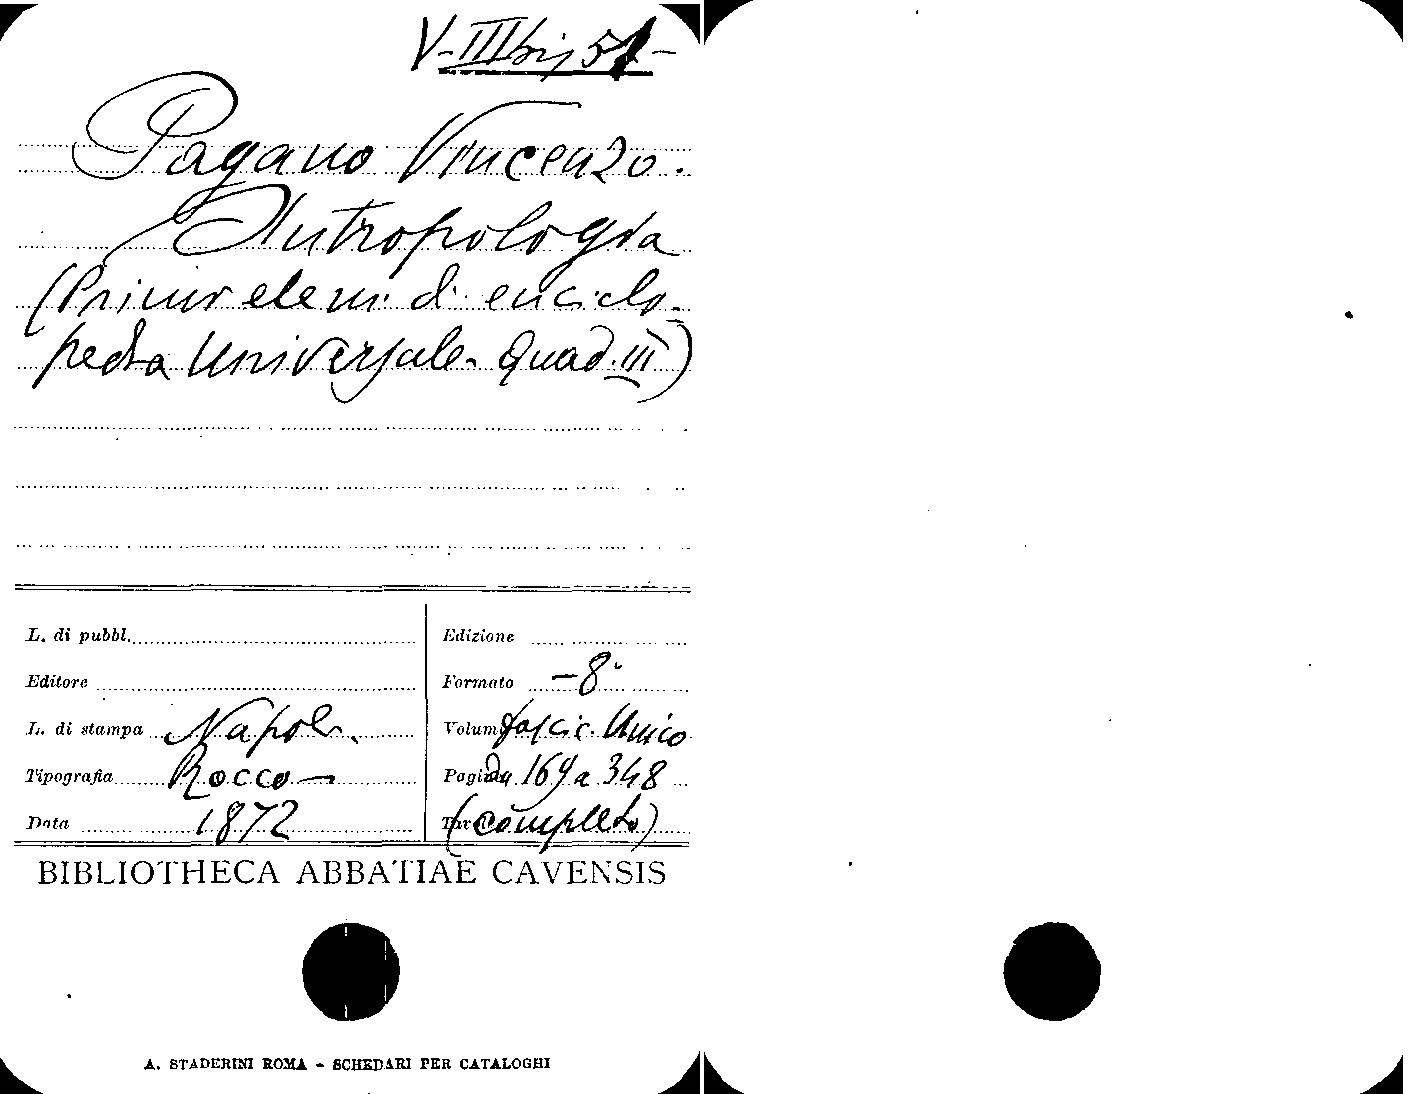 V-III bis 51-
Pagano Vincenzo.
Antropologia
(Primi elem. di enciclo-
pedia Universale. Quad. III)
L. di pubbl.
Editore
L. di stampa Napoli.
Tipografia Rocco
Data 1872
Edizione
Formato -8°
Volumi fascic. Unico
Pagine Da 169 a 348
(completo)
BIBLIOTHECA ABBATIAE CAVENSIS
A. STADERINI ROMA - SCHEDARI PER CATALOGHI